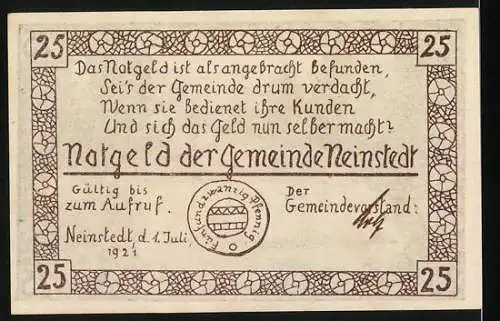 25 25
Das Notgeld ist als angebracht befunden,
Sei's der Gemeinde drum verdacht,
Wenn sie bedienet ihre Kunden
Und sich das Geld nun selber macht?
Notgeld der Gemeinde Neinstedt
Gültig bis
zum Aufruf.
Neinstedt, d. 1. Juli
1921
Fünfundzwanzig Pfennig.
Der
Gemeindevorstand:
25 25